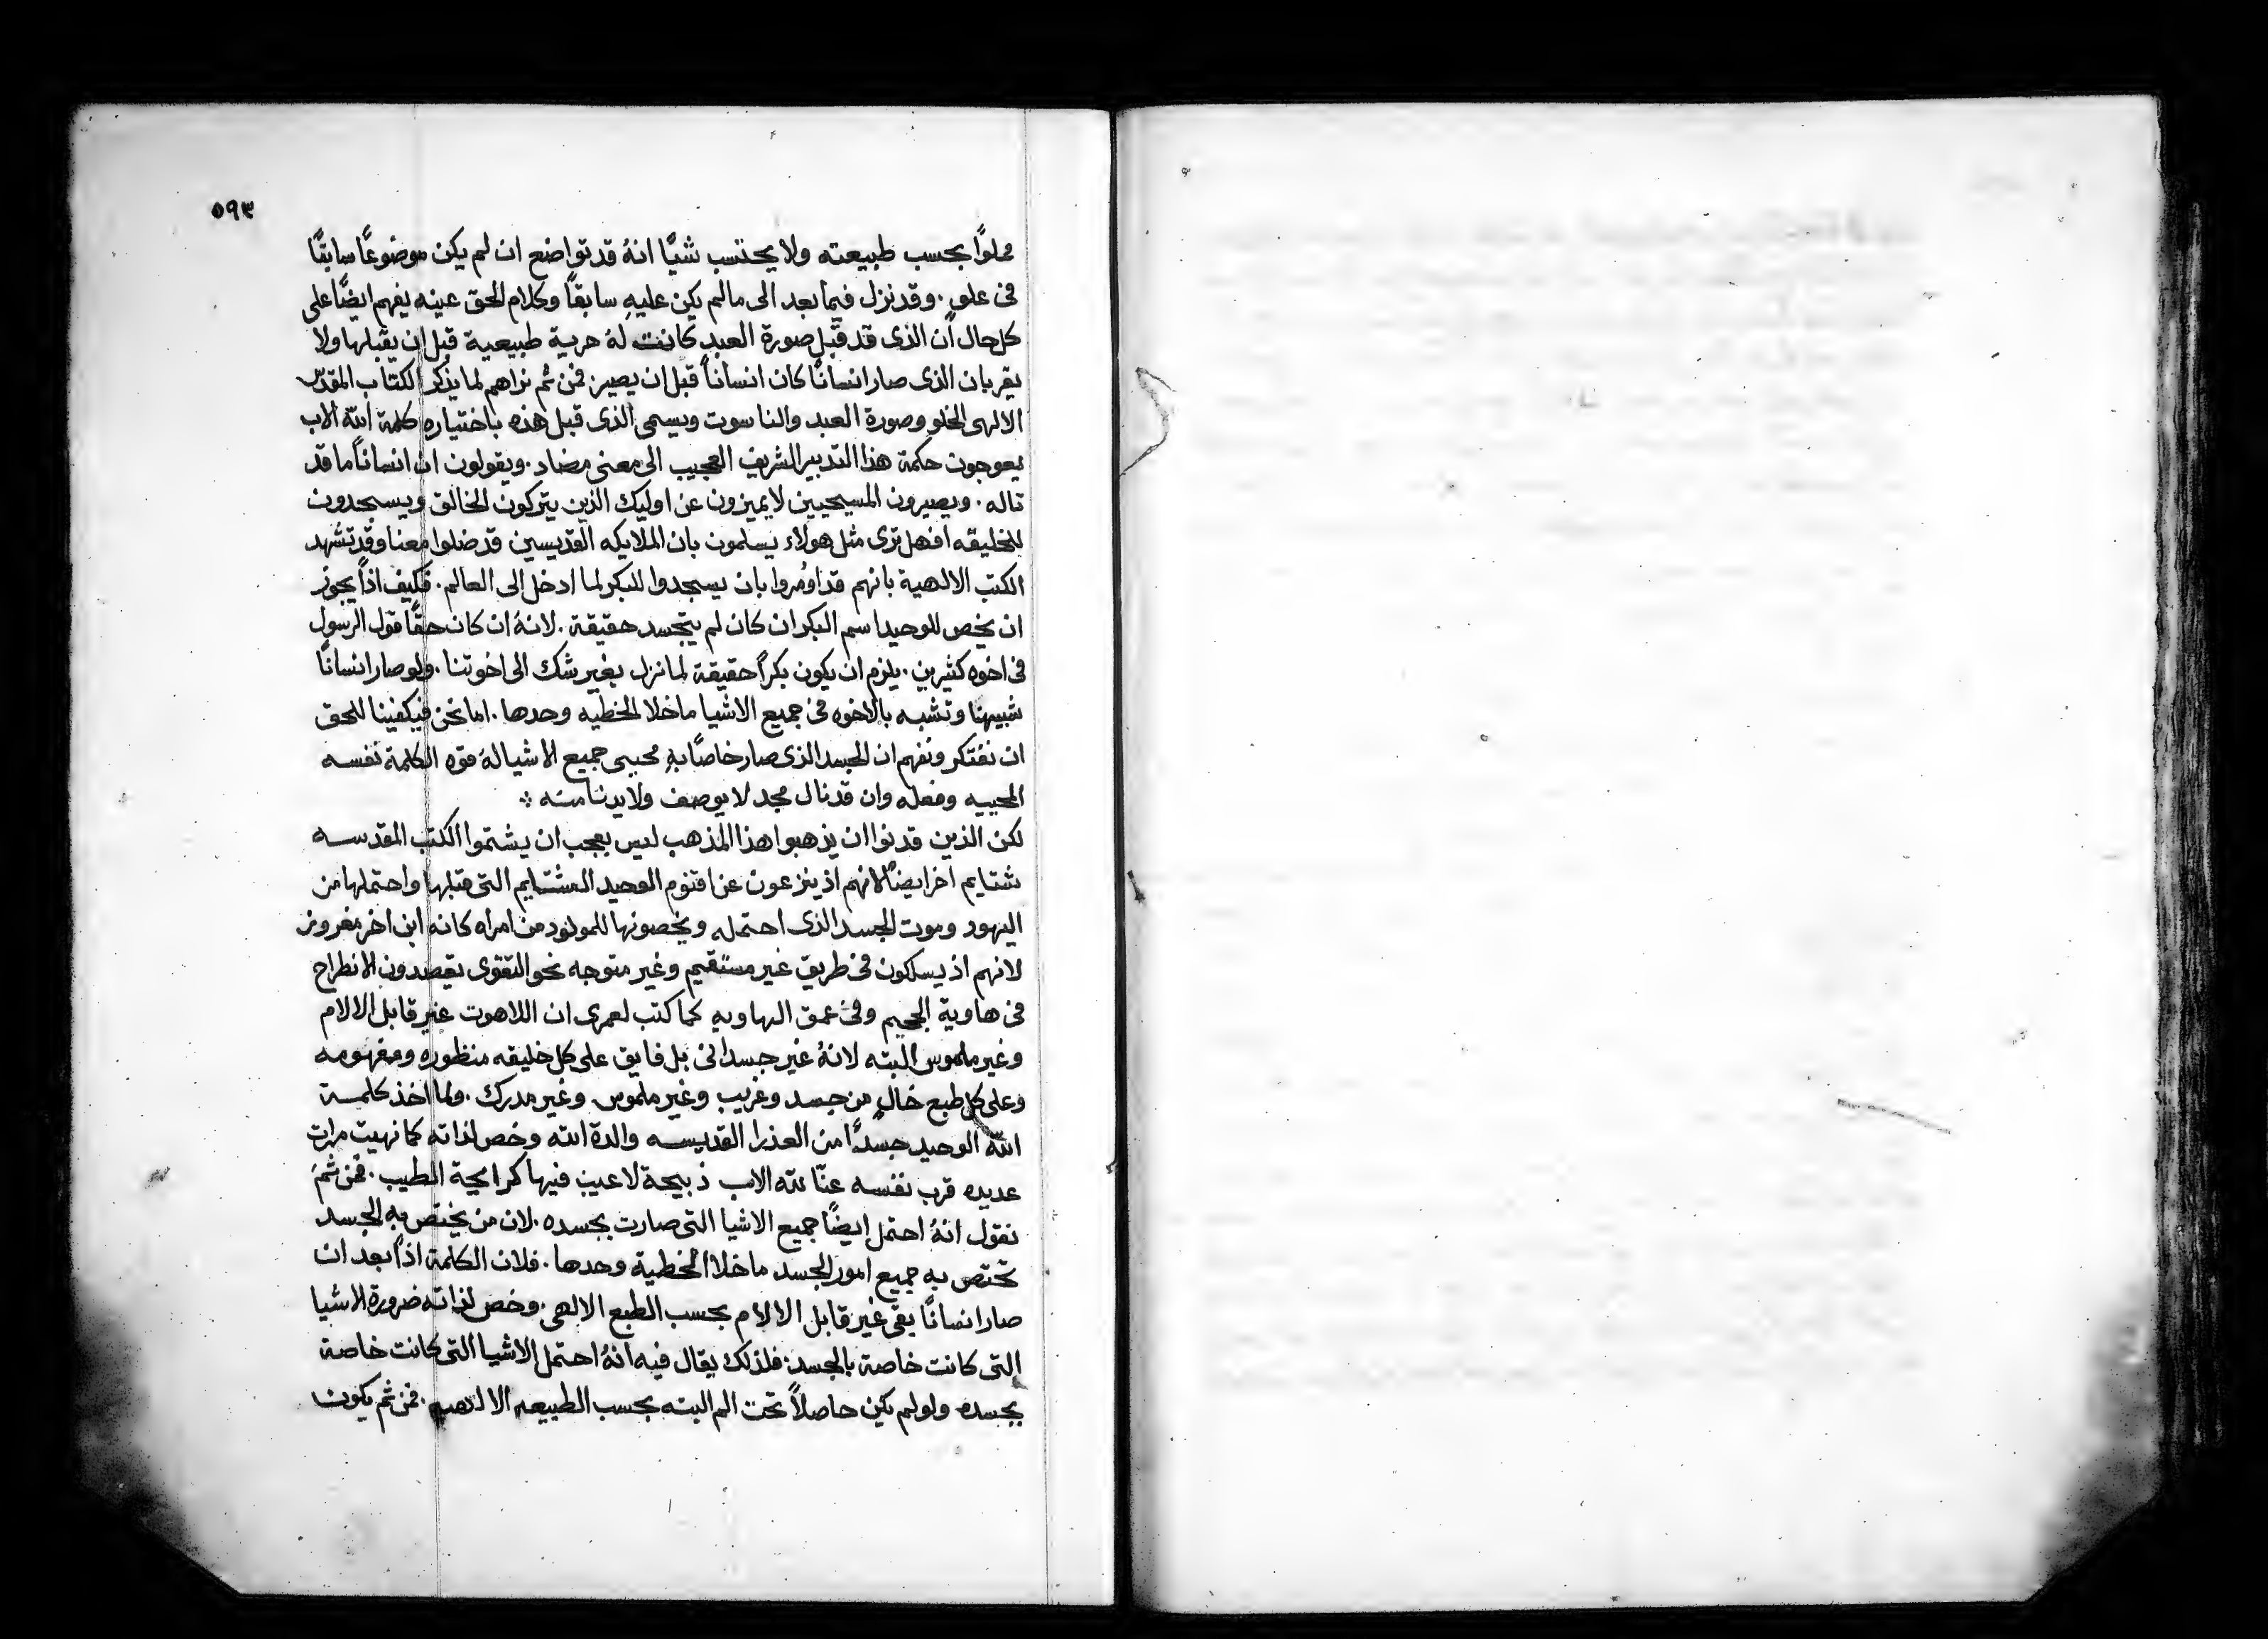 ٥٩٣
مملوًا بحسب طبيعته ولا يحتسب شيًا انهُ قد تواضع ان لم يكن موضوعًا سابقًا
فى علوٍ. وقد نزل فيما بعد الى ما لم يكن عليهِ سابقًا وكلام الحق عينه يفهم ايضًا على
كل حال ان الذى قد قبل صورة العبد كانت لهُ حرية طبيعية قبل ان يقبلها ولا
يقر بان الذى صار انسانًا كان انسانًا قبل ان يصير فمن ثم نراهم لما يذكر الكتاب المقدس
الالهى الخلو وصورة العبد والناسوت ويسمى الذى قبل هذه باختياره كلمة الله الاب
يعوجون حكمة هذا التدبير الشريف العجيب الى معنى مضاد. ويقولون ان انسانًا ما قد
تاله. ويصيرون المسيحيين لا يميزون عن اوليك الذين يتركون الخالق ويسجدون
للخليقه افهل ترى مثل هولاء يسلمون بان الملايكه القديسين قد ضلوا معنا وقد تشهد
الكتب الالهية بانهم قد اومروا بان يسجدوا للبكر لما ادخل الى العالم. فكيف اذًا يجوز
ان يخص للوحيد اسم البكر ان كان لم يتجسد حقيقة. لانهُ ان كان حقًا قول الرسول
فى اخوه كثيرين. يلزم ان يكون بكرًا حقيقة لما نزل بغير شك الى اخوتنا. ولو صار انسانًا
شبيهنا وتشبه بالاخوه فى جميع الاشيا ما خلا الخطيه وحدها. اما نحن فيكفينا للحق
ان نفتكر ونفهم ان الجسد الذى صار خاصًا بهِ محيى جميع الاشيا لهُ قوه الكلمة نفسه
المحييه وفعله وان قد نال مجد لا يوصف ولا يدنا منه ⁘
لكن الذين قد نوا ان يذهبوا هذا المذهب ليس بعجب ان يشتموا الكتب المقدسه
شتايم اخر ايضًا لانهم اذ ينزعون عن اقنوم الوحيد الشتايم التى قبلها واحتملها من
اليهود وموت الجسد الذى احتمله ويخصونها للمولود من امراه كانه ابن اخر مفروز
لانهم اذ يسلكون فى طريق غير مستقيم وغير متوجه نحو التقوى يقصدون الانطراح
فى هاوية الجحيم وفى عمق الهاويه كما كتب لعمرى ان اللاهوت غير قابل الالام
وغير ملموس البته لانهُ غير جسدانى بل فايق على كل خليقه منظوره ومفهومه
وعلى كل طبع خالٍ من جسد وغريب وغير ملموس وغير مدرك. ولما اخذ كلمة
الله الوحيد جسدًا من العذرا القديسه والدة الله وخص لذاته كما نهيت مرات
عديده قرب نفسه عنّا لله الاب ذبيحة لا عيب فيها كرايحة الطيب. فمن ثمَ
نقول انهُ احتمل ايضًا جميع الاشيا التى صارت بجسده. لان من يختص بهِ الجسد
تختص به جميع امور الجسد ما خلا الخطية وحدها. فلان الكلمة اذًا بعد ان
صار انسانًا بقى غير قابل الالام بحسب الطبع الالهى. وخص لذاته ضرورة الاشيا
التى كانت خاصة بالجسد. فلذلك يقال فيه انهُ احتمل الاشيا التى كانت خاصة
بجسده ولو لم يكن حاصلاً تحت الم البته بحسب الطبيعه الالهيه. فمن ثم يكون